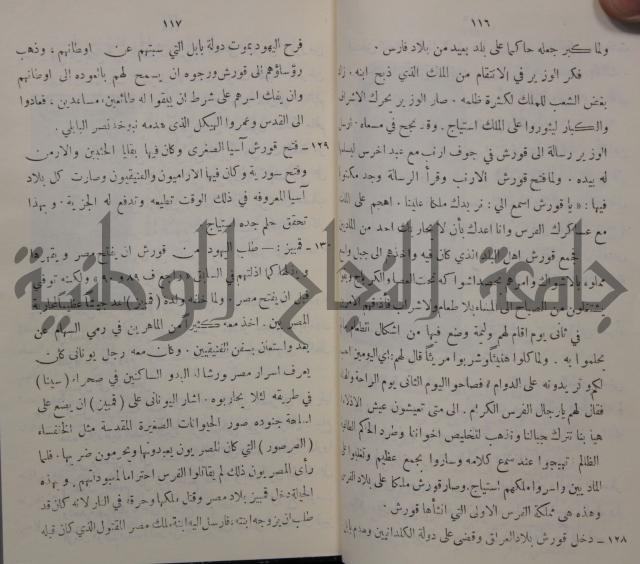 ١١٦
ولما كبر جعله حاكما على بلد بعيد من بلاد فارس .
فكر الوزير في الانتقام من الملك الذي ذبح ابنه .
بغض الشعب للملك لكثرة ظلمه . صار الوزير يحرك الاشراف
والكبار ليثوروا على الملك استياج . وقد نجح في مسماه .
الوزير رسالة الى قورش في جوف ارنب مع عبد اخرس
له بيده . ولما فتح قورش الارنب وقرأ الرسالة وجد مكتوبا
فيها : « يا قورش اسمع الي : نريدك ملكا علينا . اهجم على
مع عساكرك الفرس وانا اعدك بأن لا يحاربك احد من الماديين
جمع قورش اهل البلد الذي كان فيه واخذهم الى جبل
من الصباح الى المساء بلا طعام ولا شراب
في ثاني يوم اقام لهم وليمة وضع فيها من اشكال الطعام
يحلموا به . ولما كلوا هنيئا وشربوا مريئا قال لهم : اي اليومين
لكم وتريدونه على الدوام ؟ فصاحوا اليوم الثاني يوم الراحة
فقال لهم يا رجال الفرس الكرام . الى متى تعيشون عيش الاذلاء
هيا بنا نترك جبالنا ونذهب لتخليص اخواننا وطرد الحاكم
الظالم . تهيجوا عند سمع كلامه وساروا بجمع عظيم وتغلبوا
الماديين واسروا ملكهم استياج . وصار قورش ملكا على بلاد الفرس
وهذه هي مملكة الفرس الاولى التي انشأها قورش .
١٢٨ – دخل قورش بلاد العراق وقضى على دولة الكلدانيين وهدم
١١٧
فرح اليهود بموت دولة بابل التي سبتهم عن اوطانهم ، وذهب
رؤساؤهم الى قورش ورجوه ان يسمح لهم بالعوده الى اوطانهم
وان يفك اسرهم على شرط ان يبقوا له طائعين ، مساعدين ، فعادوا
الى القدس وعمروا الهيكل الذي هدمه نبوخذ نصر البابلي .
١٢٩ – فتح قورش آسيا الصغرى وكان فيها بقايا الحثيين والارمن
وفتح سورية وكان فيها الاراميون والفنيقيون وصارت كل بلاد
آسيا المعروفه في ذلك الوقت تطيعه وتدفع له الجزية . وبهذا
تحقق حلم جده استياج .
١٣٠ – قمبيز : – طلب اليهود من قورش ان يفتح مصر ويقهرها
ويذلها كما اذلتهم في السابق « راجع ف ٨٩ – ٩٠ » ولكنه توفي
قبل ان يفتح مصر . ولما خلفه ولده ( قمبيز ) اعد جيشا عظيما لمحاربة
المصريين . اخذ معه كثيرا من الماهرين في رمي السهم عن
بعد واستعان بسفن الفنيقيين . وكان معه رجل يوناني كان
يعرف اسرار مصر ورشا له البدو الساكنين في صحراء ( سينا )
في طريقه لئلا يحاربوه . اشار اليوناني على ( قمبيز ) ان يضع على
اسلحة جنوده صور الحيوانات الصغيرة المقدسة مثل الخنفساء
( الصرصور ) التي كان المصريون يعبدونها ويحرمون ضربها . فلما
رأى المصريون ذلك لم يقاتلوا الفرس احتراما لمعبوداتهم . وبهذه
الحيلة دخل قمبيز بلاد مصر وقتل ملكها وحرقه في النار لانه كان قد
طلب ان يزوجه ابنته ، فارسل اليه ابنة ملك مصر المقتول الذي كان قبله
جامعة النجاح الوطنية